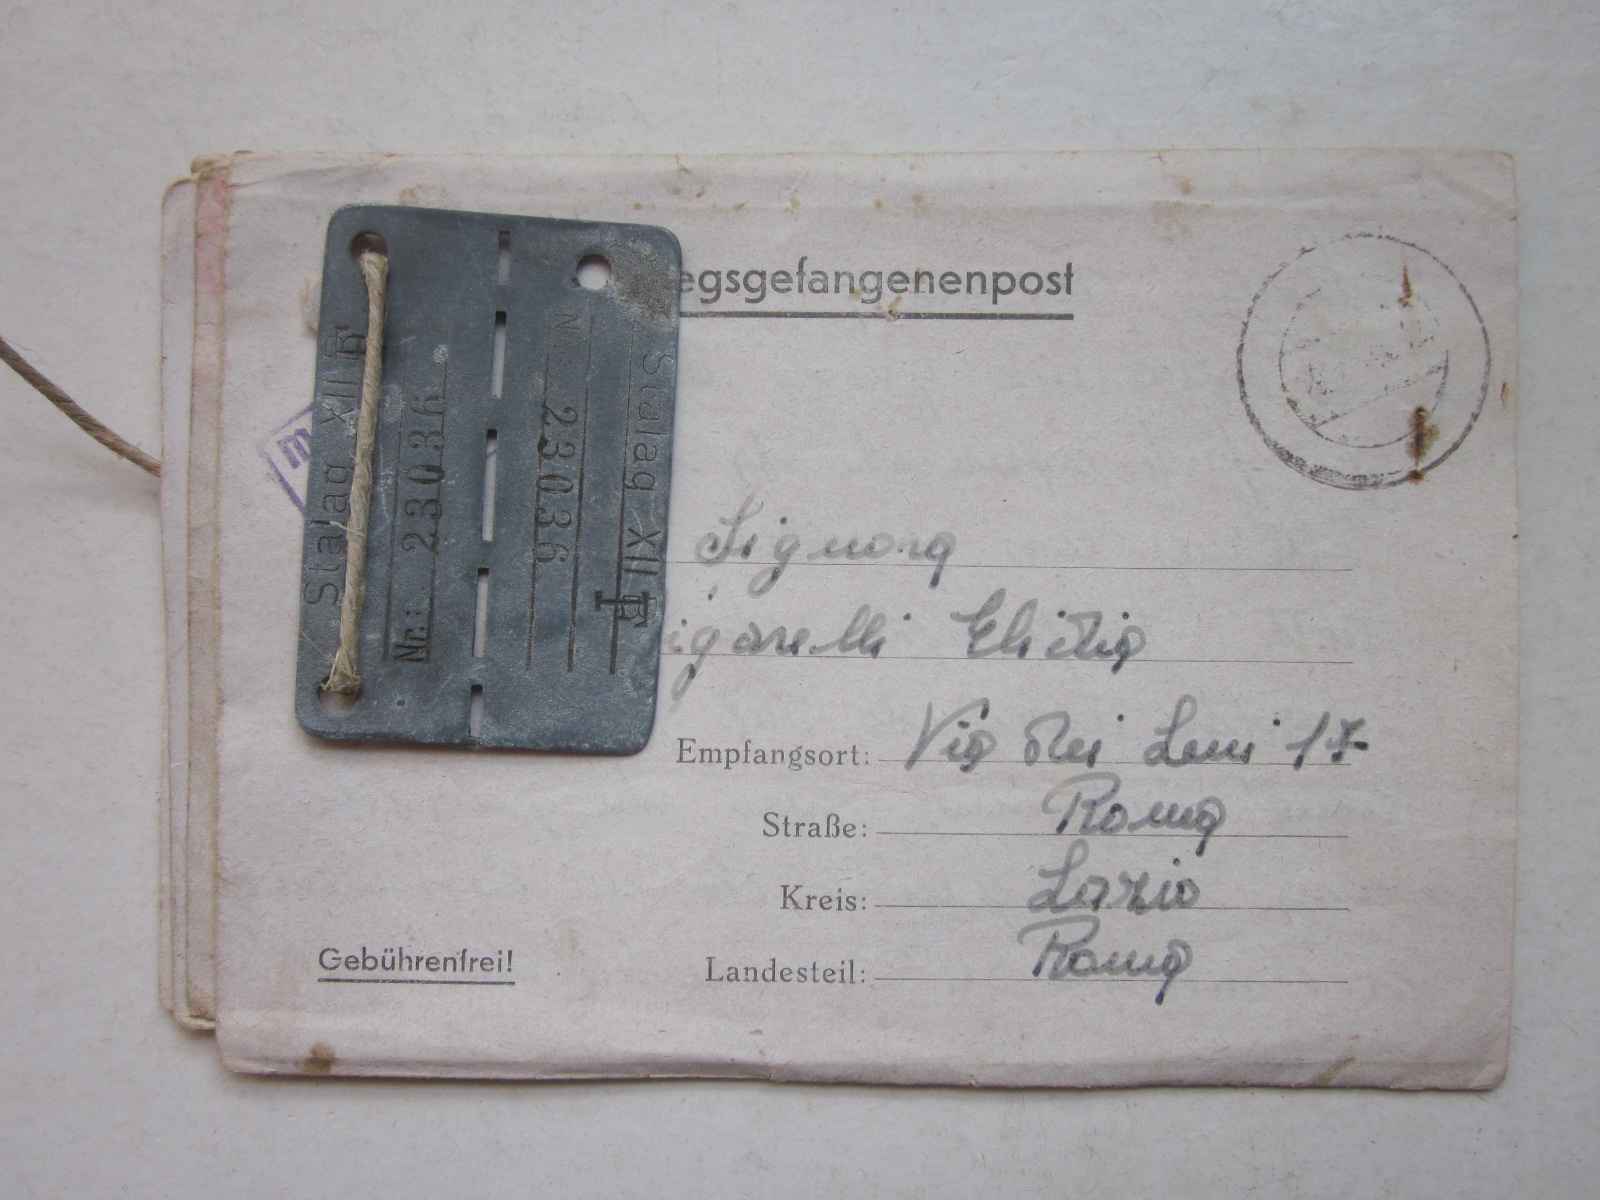 Stalag XII
Nr.: 23036
23036
Stalag XII
egsgefangenenpost
Signora
igarelli
Empfangsort: Via dei 17
Straße: Roma
Kreis: Lazio
Landesteil: Roma
Gebührenfrei!